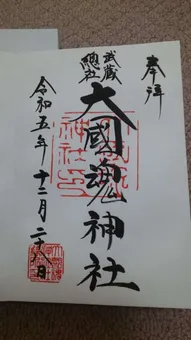 奉拝
武蔵
總社
大國魂神社
令和五年十二月二十八日